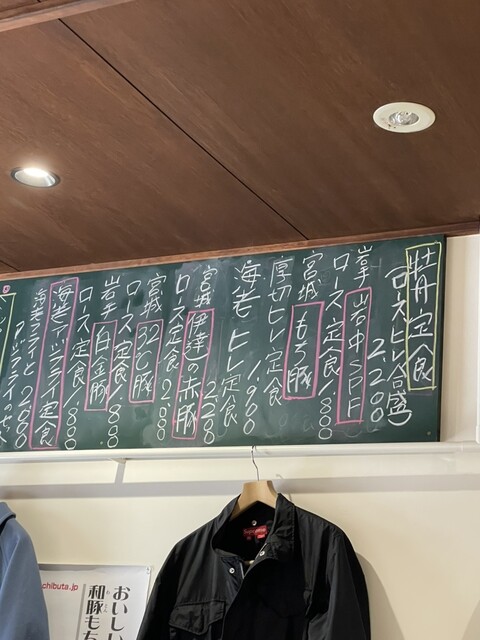 特丹定食
ロースヒレ合盛
2,200
岩手 岩中SPF
ロース定食 1,800
宮城 もち豚
厚切ヒレ定食
1,900
海老ヒレ定食
2,200
宮城 伊達の赤豚
ロース定食 2,000
宮城 32℃豚
ロース定食 1,800
岩手 白金豚
ロース定食 1,800
海老アジフライ定食
海老フライと 2,000
おいしい
和豚もち
chibuta.jp